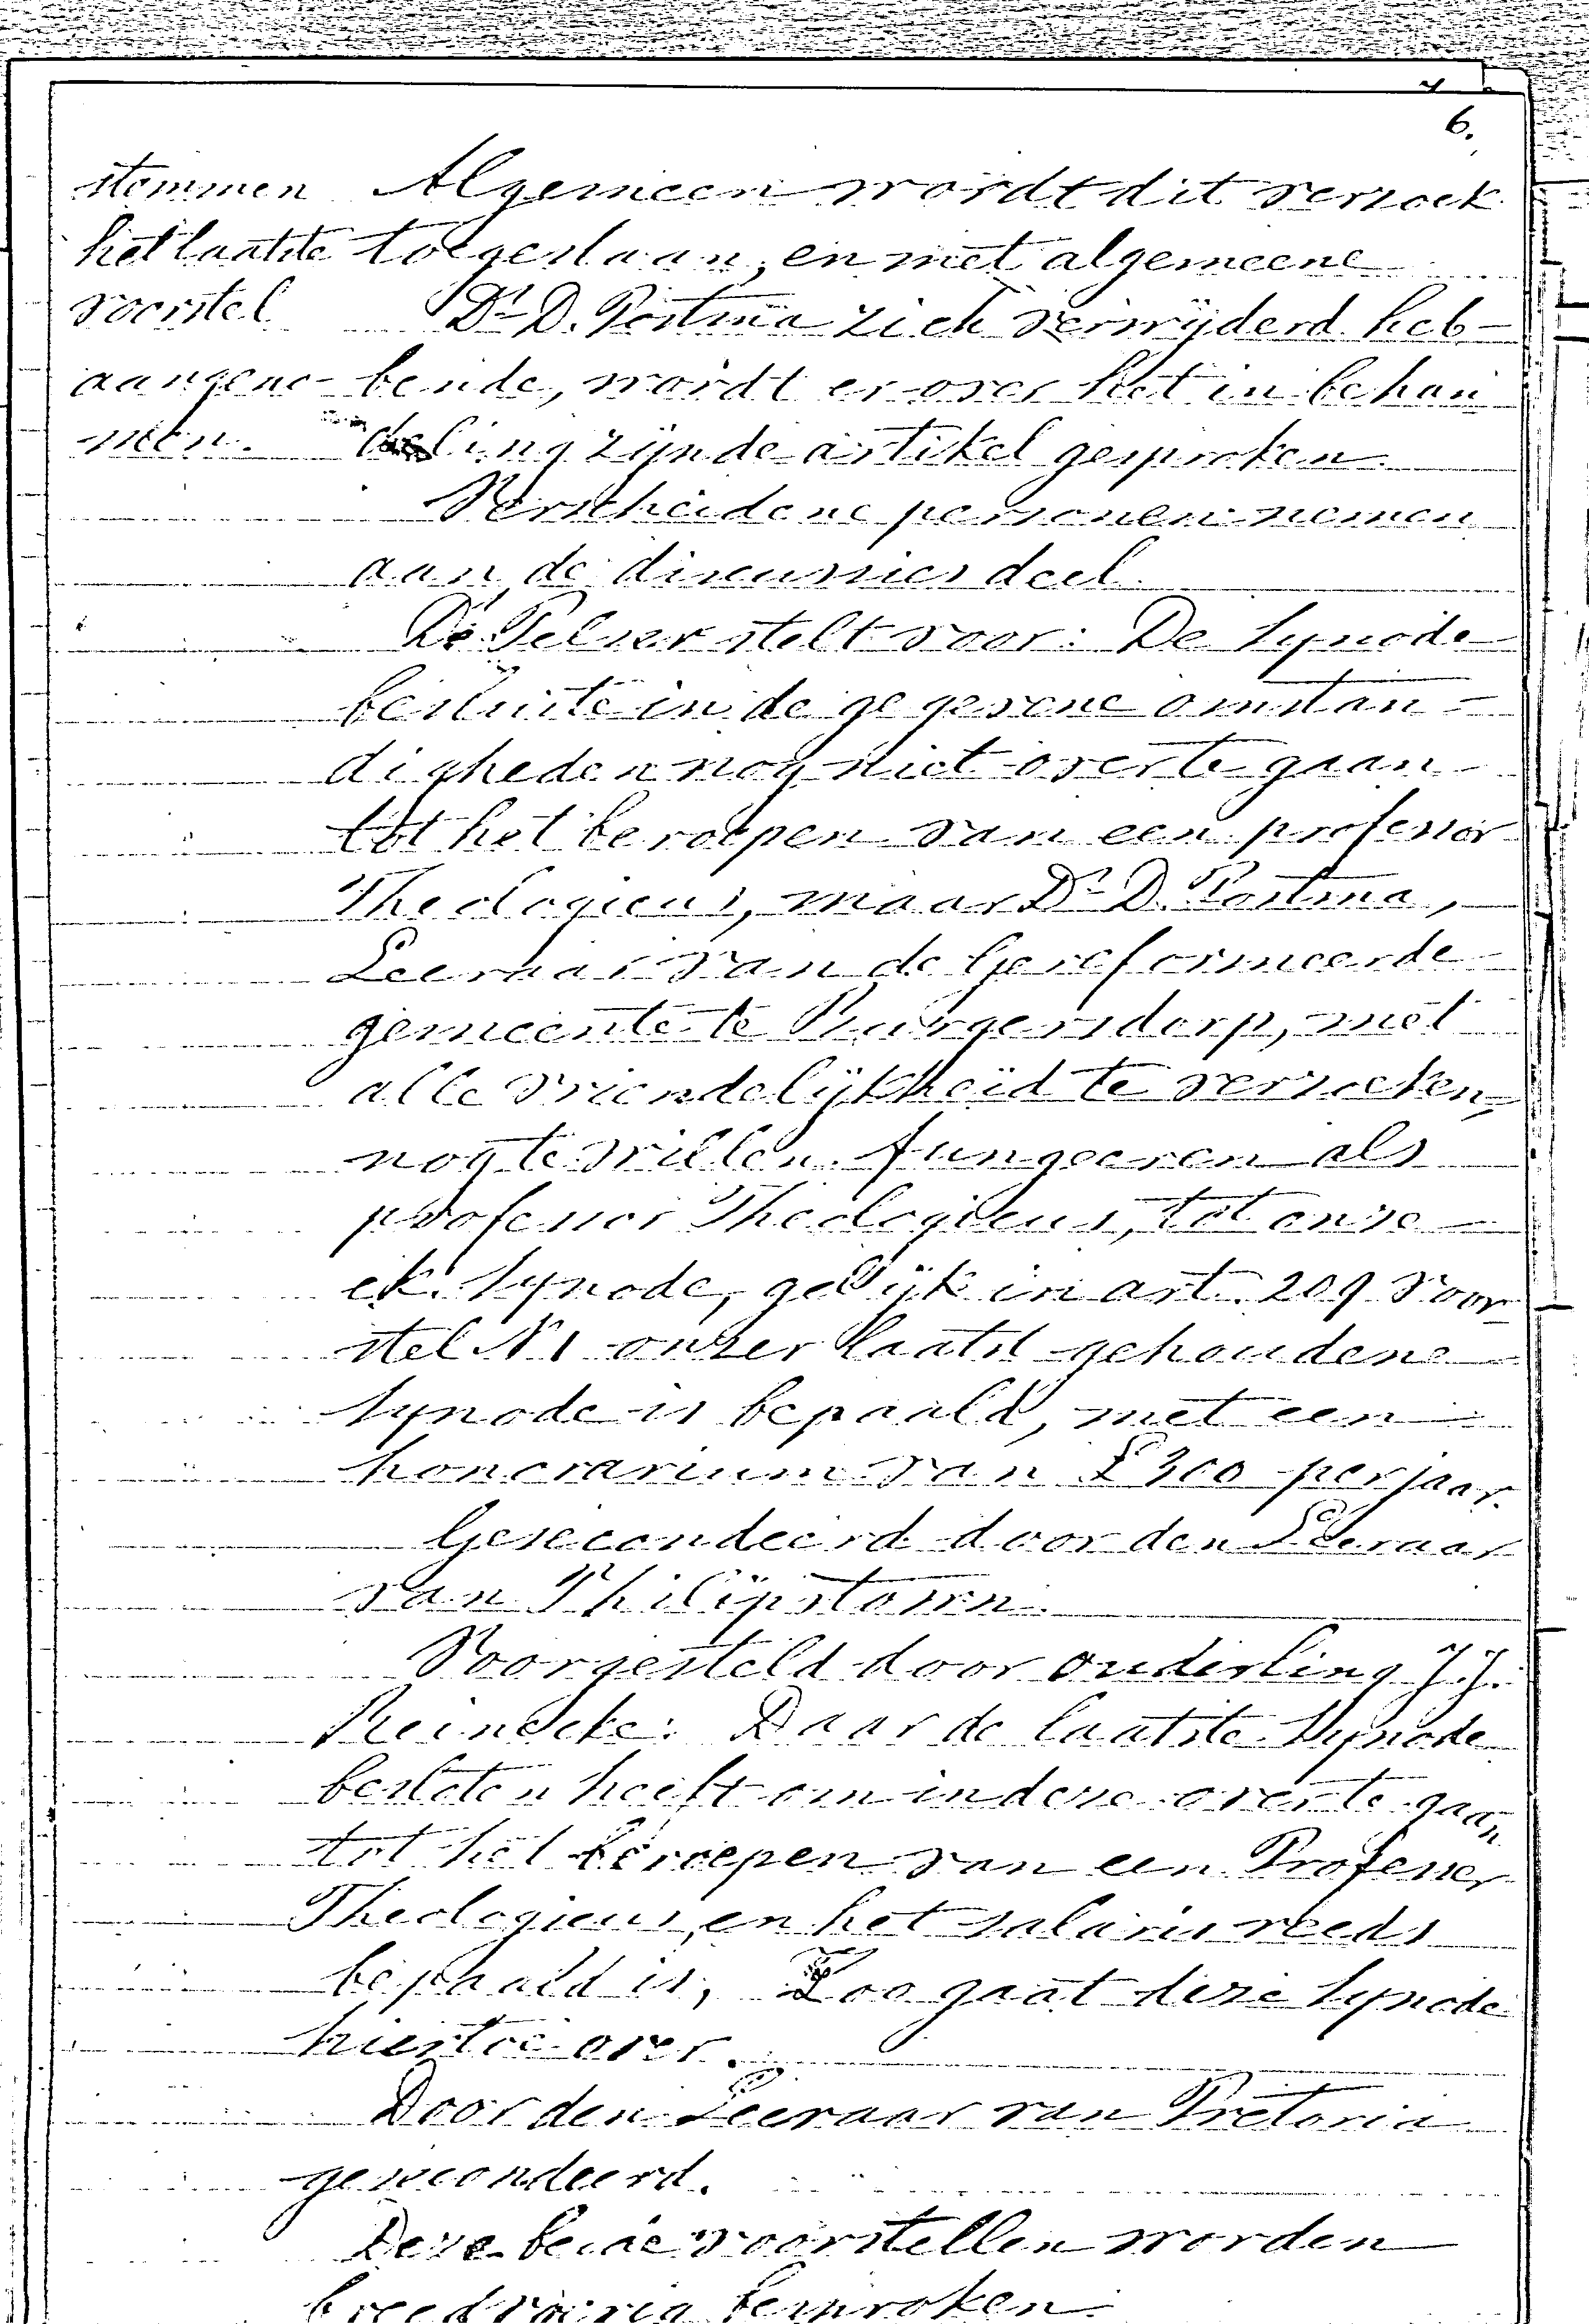 6.
stemmen Algemeen wordt dit verzoek
het laatste toegestaan, en met algemeene
voorstel Ds. D. Postma zich verwijderd heb-
aangeno- bende, wordt er over het in behan
men. deling zijnde artikel gesproken.
Verscheidene personen nemen
aan de discussies deel.
Ds. Pelser stelt voor: De Synode
besluite in de gegevene omstan-
digheden nog niet over te gaan
tot het beroepen van een professor
Theologicus, maar Ds. D. Postma,
Leeraar van de Gereformeerde
gemeente te Burgersdorp, met
alle vriendelijkheid te verzoeken,
nog te willen fungeeren als
professor Theologicus, tot onze
ek. Synode, gelijk in art. 209 voor
stel N1 onzer laatst gehoudene
Synode is bepaald, met een
honorarium van £300 per jaar.
Gesecondeerd door den Leeraar
van Philipstown.
Voorgesteld door ouderling J.J.
Reinecke: Daar de laatste Synode
besloten heeft om in deze over te gaan
tot het beroepen van een Professor
Theologicus, en het salaris reeds
bepaald is, Zoo gaat deze Synode
hiertoe over.
Door den Leeraar van Pretoria
gesecondeerd.
Deze beide voorstellen worden
breedvoerig besproken.